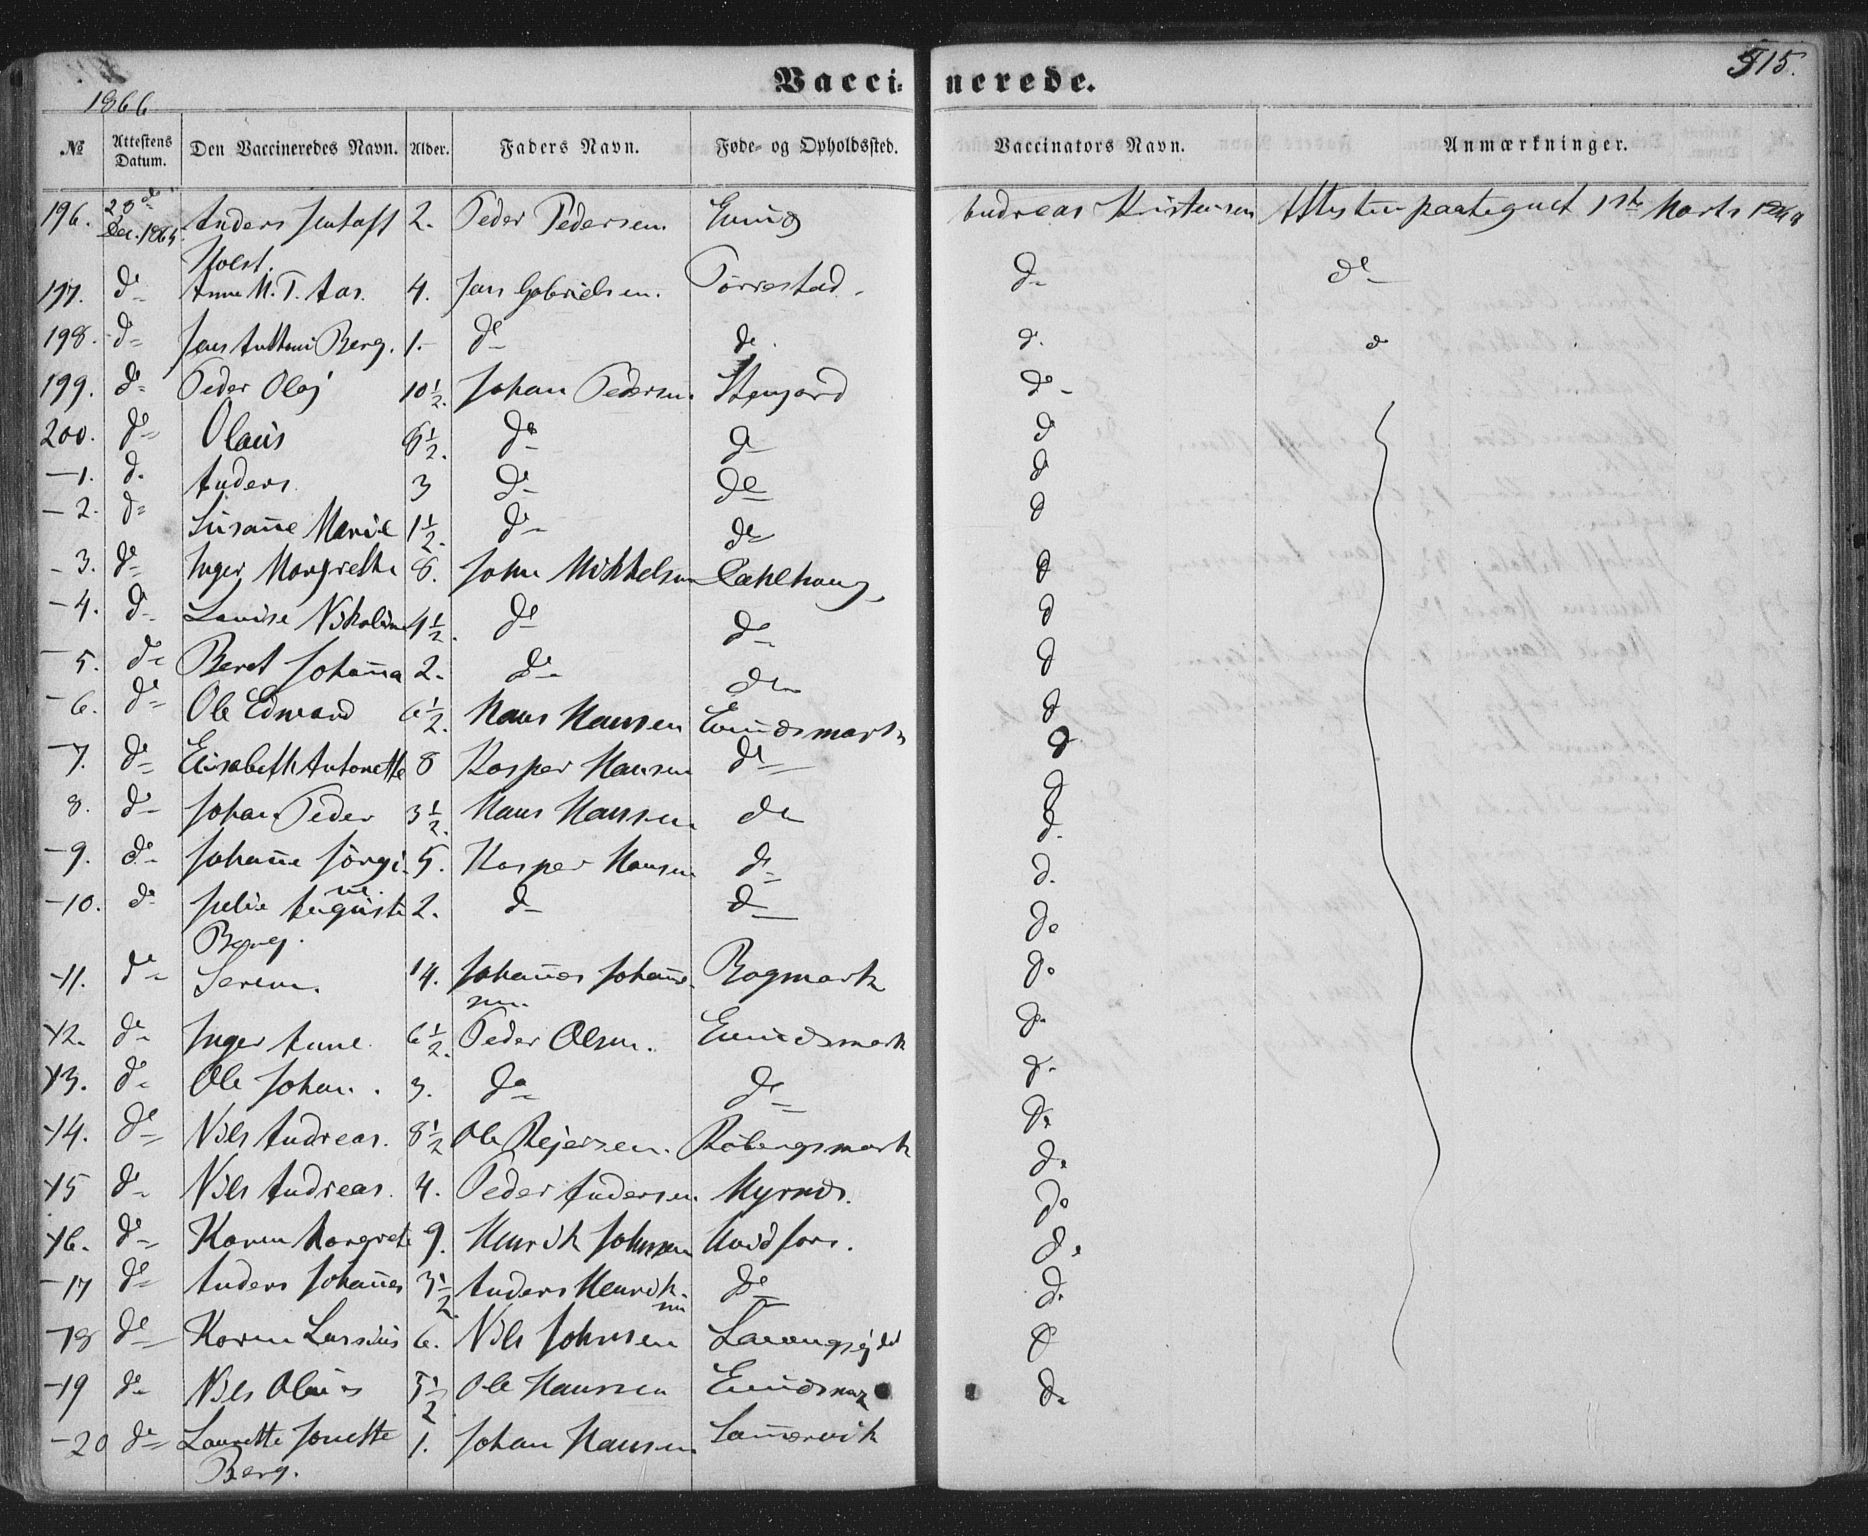 1866
Vaccinerede.
515.
№ Attestens Datum. Den Vaccineredes Navn. Alder. Faders Navn. Føde- og Opholdssted. Vaccinators Navn. Anmærkninger.
196. 20de Dec. 1865 Anders 2. Peder Pedersen. Andreas Kristensen Attesten paategnet 1ste Marts
Holst.
197. do Anne M. T. Aas. 4. Jens Gabrielsen. Torrestad. do do
198. do Jens Anthoni Berg. 1. do do do do
199. do Peder Olaj 10½. Johan Pedersen. do
200. do Olaus 6½. do do do
-1. do Anders 3 do do do
-2. do Susanne Marie 1½. do do do
-3. do Inger Margrethe 8. John Mikkelsen do
-4. do Lovise Nikoline 4½. do do do
5. do Beret Johanna 2. do do do
-6. do Ole Edward 6½. Hans Hansen do
-7. do Elisabeth Antonette 8 Kasper Hansen do do
8. do Johan Peder 3½. Hans Hansen do do
-9. do Johanne Jörgi- 5. Kasper Hansen do do
ne.
-10. do Julie Auguste 2. do do do
Berg.
-11. do Seren. 14. Johannes Johanne- Rogmark do
sen.
12. do Inger Anne 6½. Peder Olsen. do
13. do Ole Johan. 3. do do do
14. do Nils Andreas. 8½ Ole Rejersen. do
15 do Nils Andreas. 4. Peder Andersen do
16. do Karen Margrete 9. Henrik Johnsen do
-17 do Anders Johannes 3½ Anders Henrik- do do
sen
-18 do Karen 6. Nils Johnsen do
-19 do Nils Olaus 5½ Ole Hanssen do
-20 do Laurette Jonette 1. Johan Hansen
Berg.